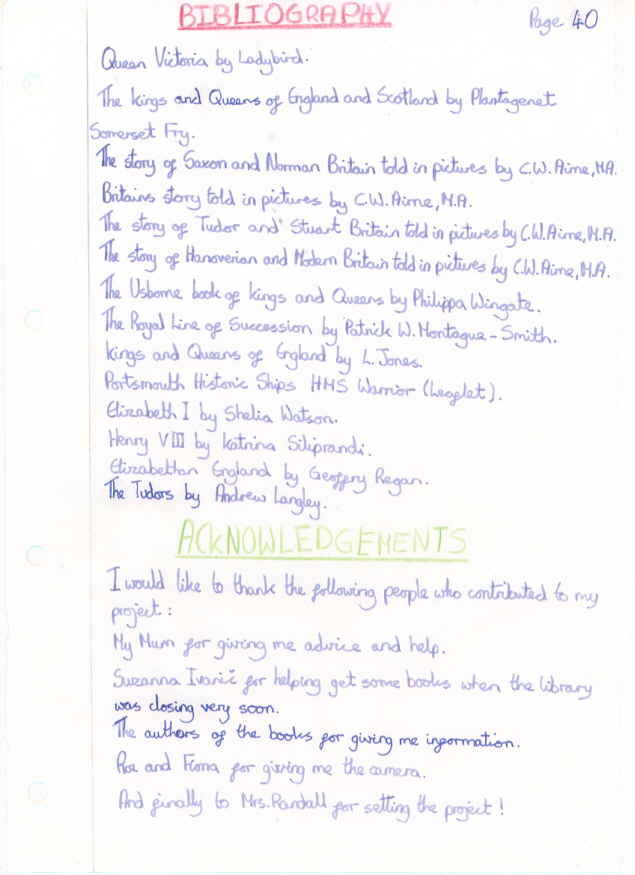 BIBLIOGRAPHY
Page 40
Queen Victoria by Ladybird.
The Kings and Queens of England and Scotland by Plantagenet
Somerset Fry.
The story of Saxon and Norman Britain told in pictures by C.W. Airne, MA.
Britains story told in pictures by C.W. Airne, M.A.
The story of Tudor and Stuart Britain told in pictures by C.W. Airne, M.A.
The story of Hanoverian and Modern Britain told in pictures by C.W. Airne, M.A.
The Usborne book of Kings and Queens by Philippa Wingate.
The Royal Line of Succession by Patrick W. Montague-Smith.
Kings and Queens of England by L. Jones.
Portsmouth Historic Ships HMS Warrior (Leaflet).
Elizabeth I by Shelia Watson.
Henry VIII by Katrina Siliprandi.
Elizabethan England by Geoffery Regan.
The Tudors by Andrew Langley.
ACKNOWLEDGEMENTS
I would like to thank the following people who contributed to my
project:
My Mum for giving me advice and help.
Suzanna Ivanič for helping get some books when the library
was closing very soon.
The authors of the books for giving me information.
and Fiona for giving me the camera.
And finally to Mrs. Randall for setting the project!